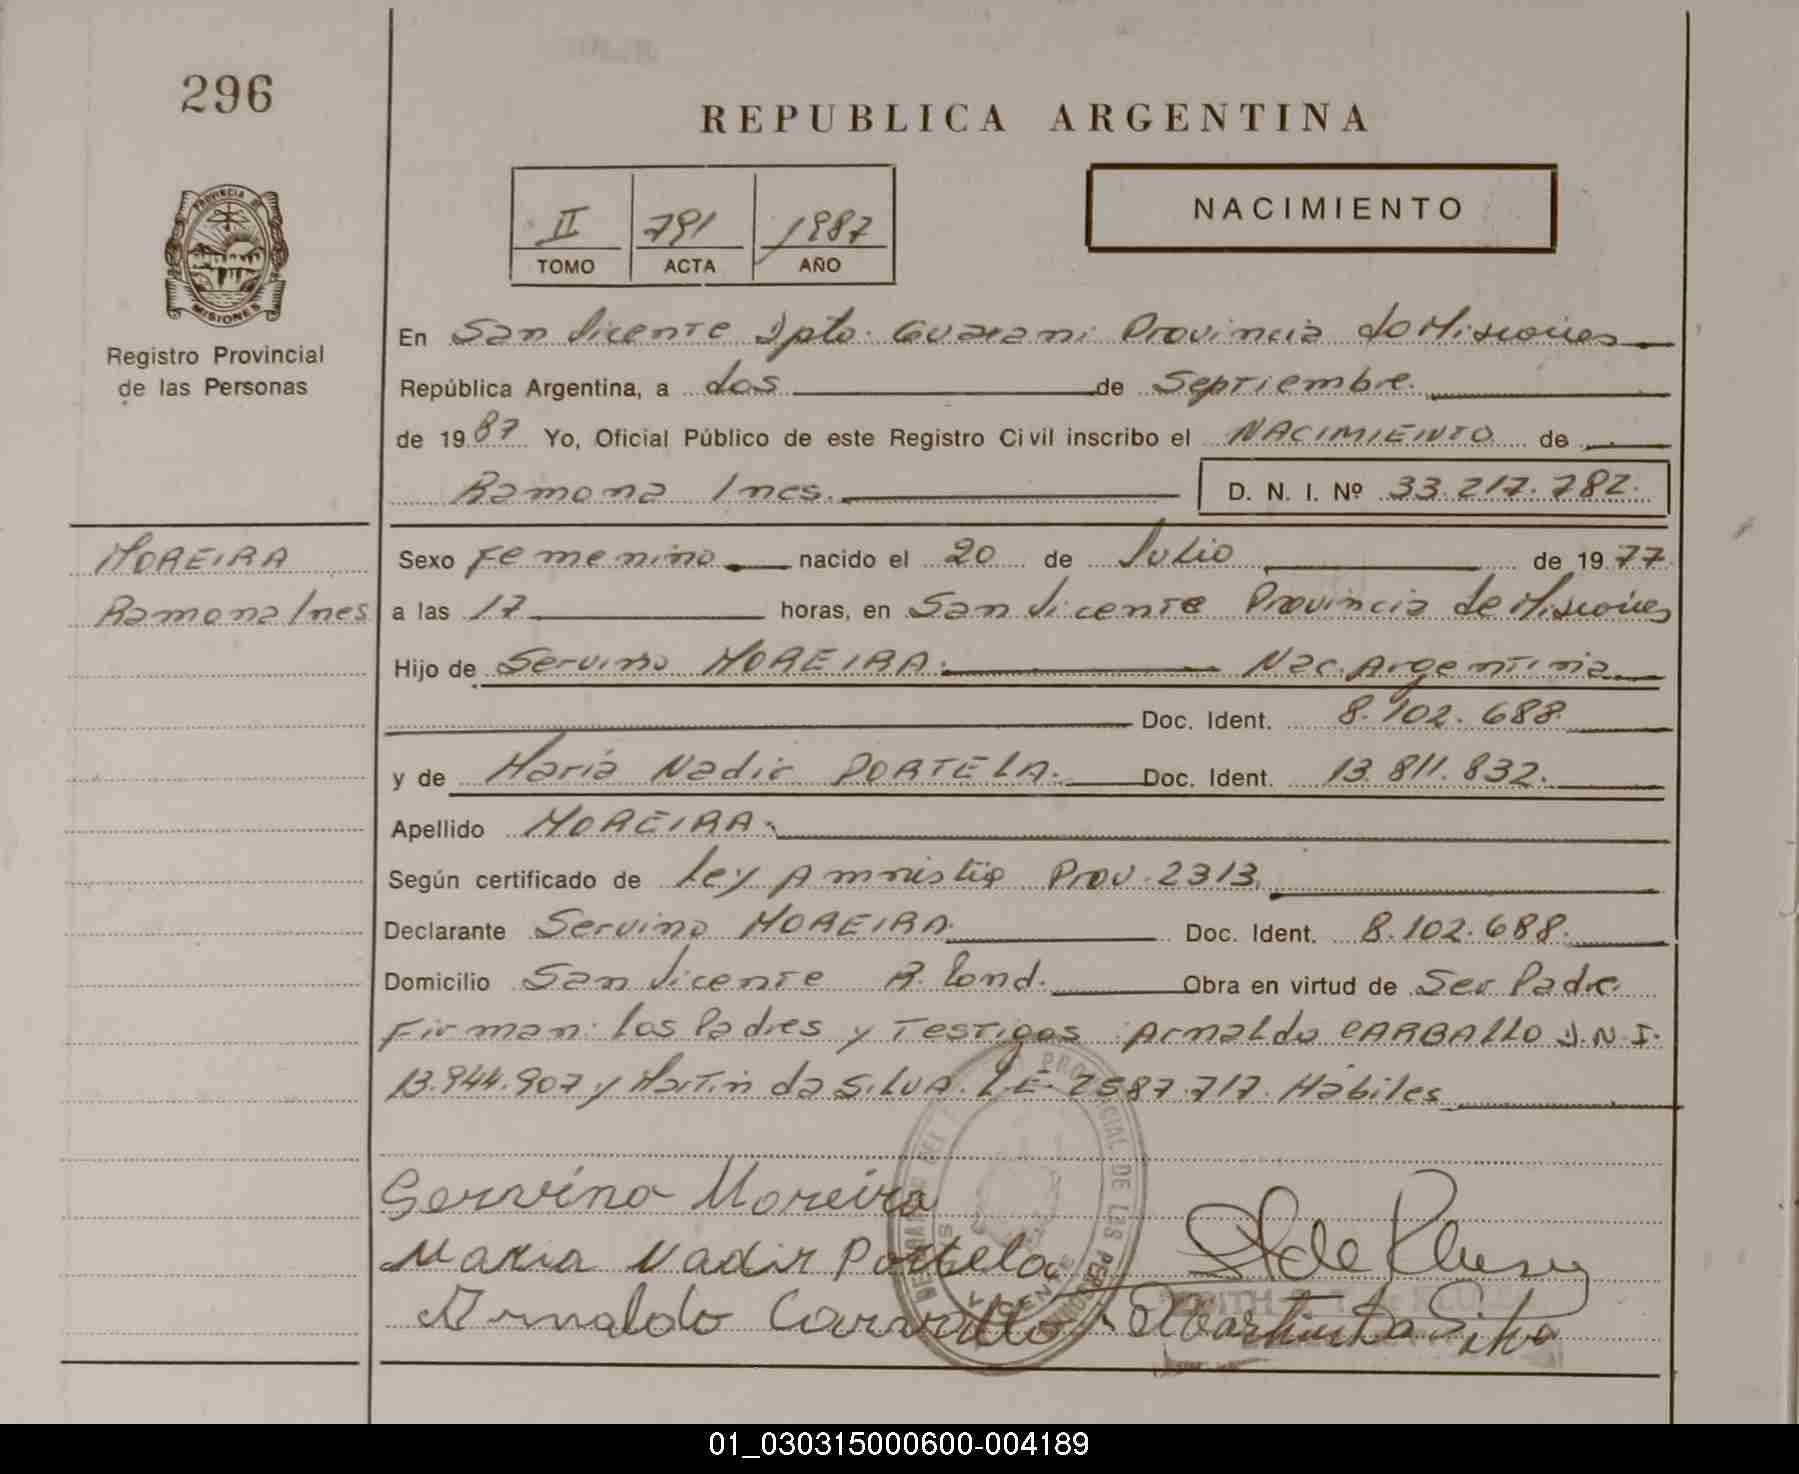 296
REPUBLICA ARGENTINA
PROVINCIA DE
MISIONES
Registro Provincial
de las Personas
II 791 1987
TOMO ACTA AÑO
NACIMIENTO
En San Vicente Dpto. Guarani Provincia de Misiones
República Argentina, a dos de Septiembre.
de 1987 Yo, Oficial Público de este Registro Civil inscribo el NACIMIENTO de
Ramona Ines. D. N. I. Nº 33.217.782.
MOREIRA
Ramona Ines
Sexo Femenino nacido el 20 de Julio de 1977
a las 17 horas, en San Vicente Provincia de Misiones
Hijo de Servino MOREIRA. Nac. Argentina
Doc. Ident. 8.102.688
y de Maria Nadir PORTELA. Doc. Ident. 13.811.832.
Apellido MOREIRA.
Según certificado de Ley Amnistia Prov. 2313.
Declarante Servino MOREIRA. Doc. Ident. 8.102.688.
Domicilio San Vicente R. Cond. Obra en virtud de Ser Padre.
Firman: los Padres y Testigos Arnaldo CARBALLO D.N.I.
13.944.907 y Martin da SILVA. L.E. 2587.717. Hábiles
Servino Moreira
Maria Nadir Portela
Arnaldo Carvallo Martin Da Silva
01_030315000600-004189